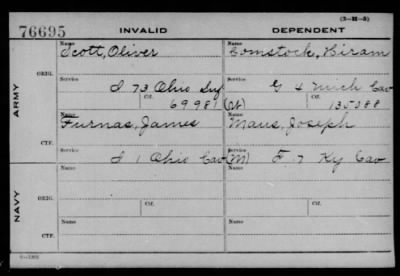 (3-M-5)
76695 INVALID DEPENDENT
Name Name
Scott, Oliver Comstock, Hiram
ORIG. Service Service
I 73 Ohio Inf G 4 Mich Cav
Ctf. Ctf.
69981 135088
ARMY
Name Name
Furnas, James Maus, Joseph
CTF. Service Service
I 1 Ohio Cav (M) F 7 Ky Cav
Name Name
ORIG.
Service Ctf. Service Ctf.
NAVY
Name Name
CTF.